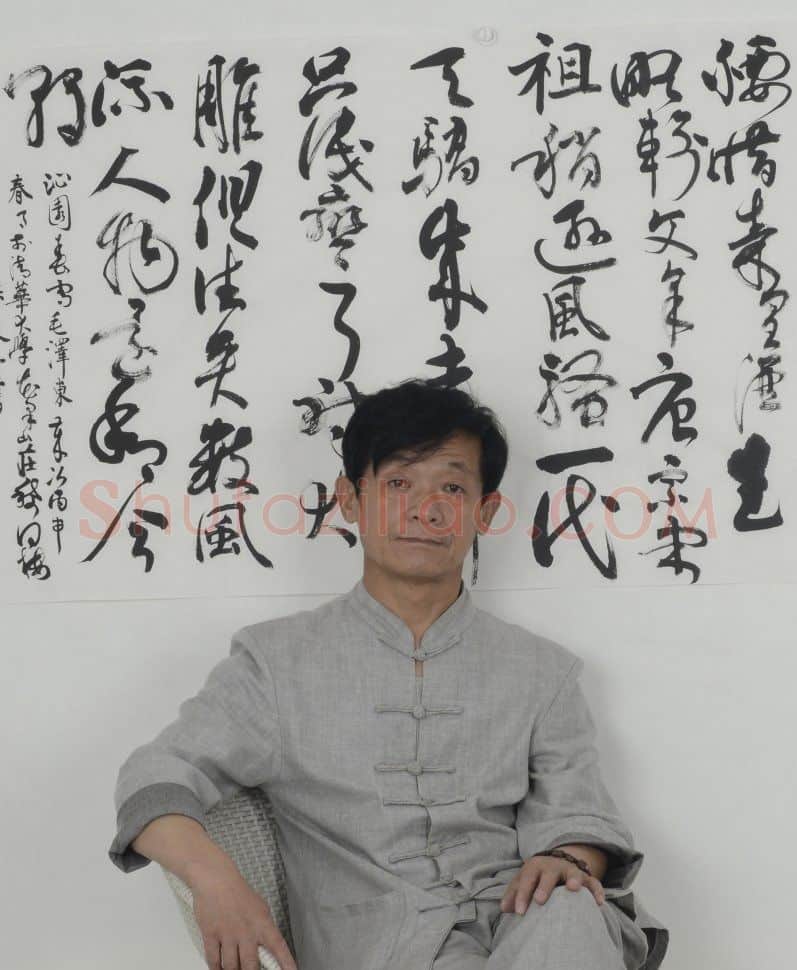 腰惜秦皇漢武
略輸文采唐宗宋
祖稍遜風騷一代
天驕成吉
只識彎弓射大
雕俱往矣數風
流人物還看今
朝
沁園春雪毛澤東歲次丙申
春月於清華大學山莊
Shufaziliao.COM